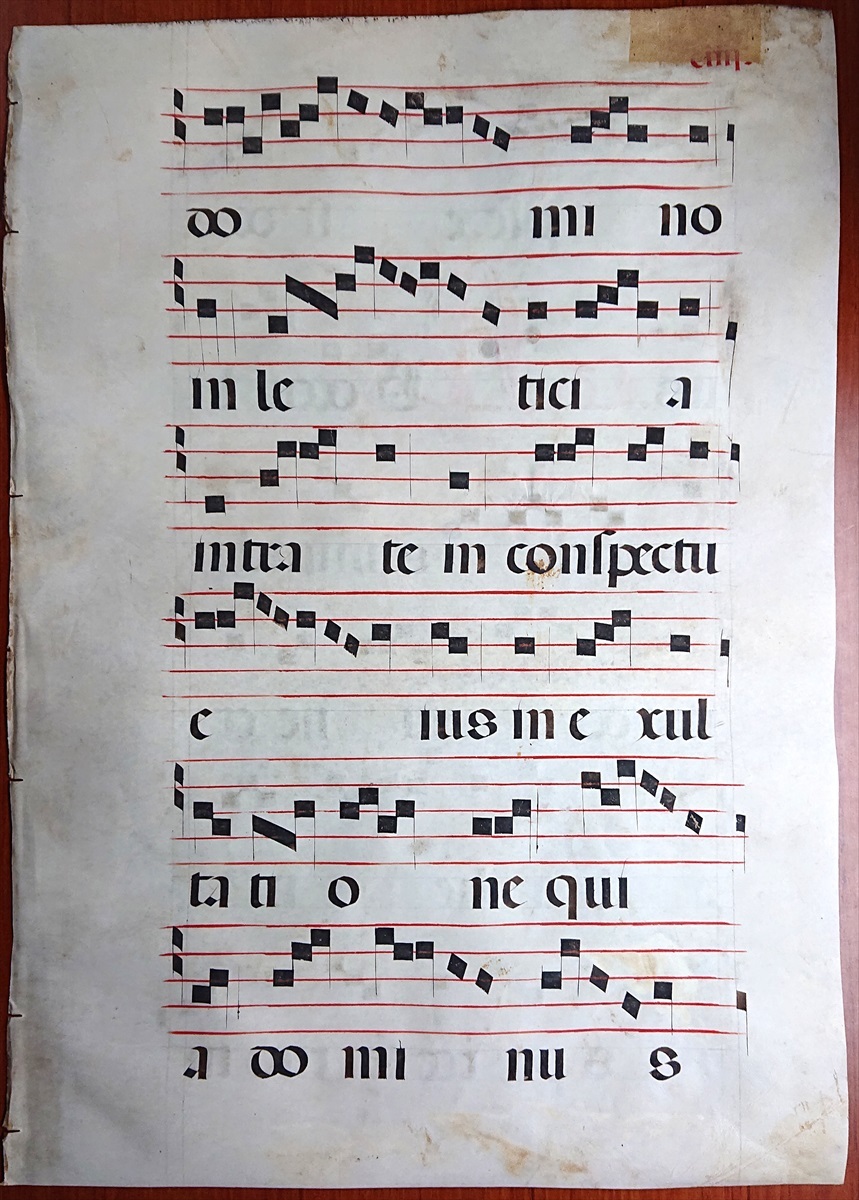 do mi no
in le tici a
intra te in conſpectu
e ius in e xul
ta ti o ne qui
a do mi nu s